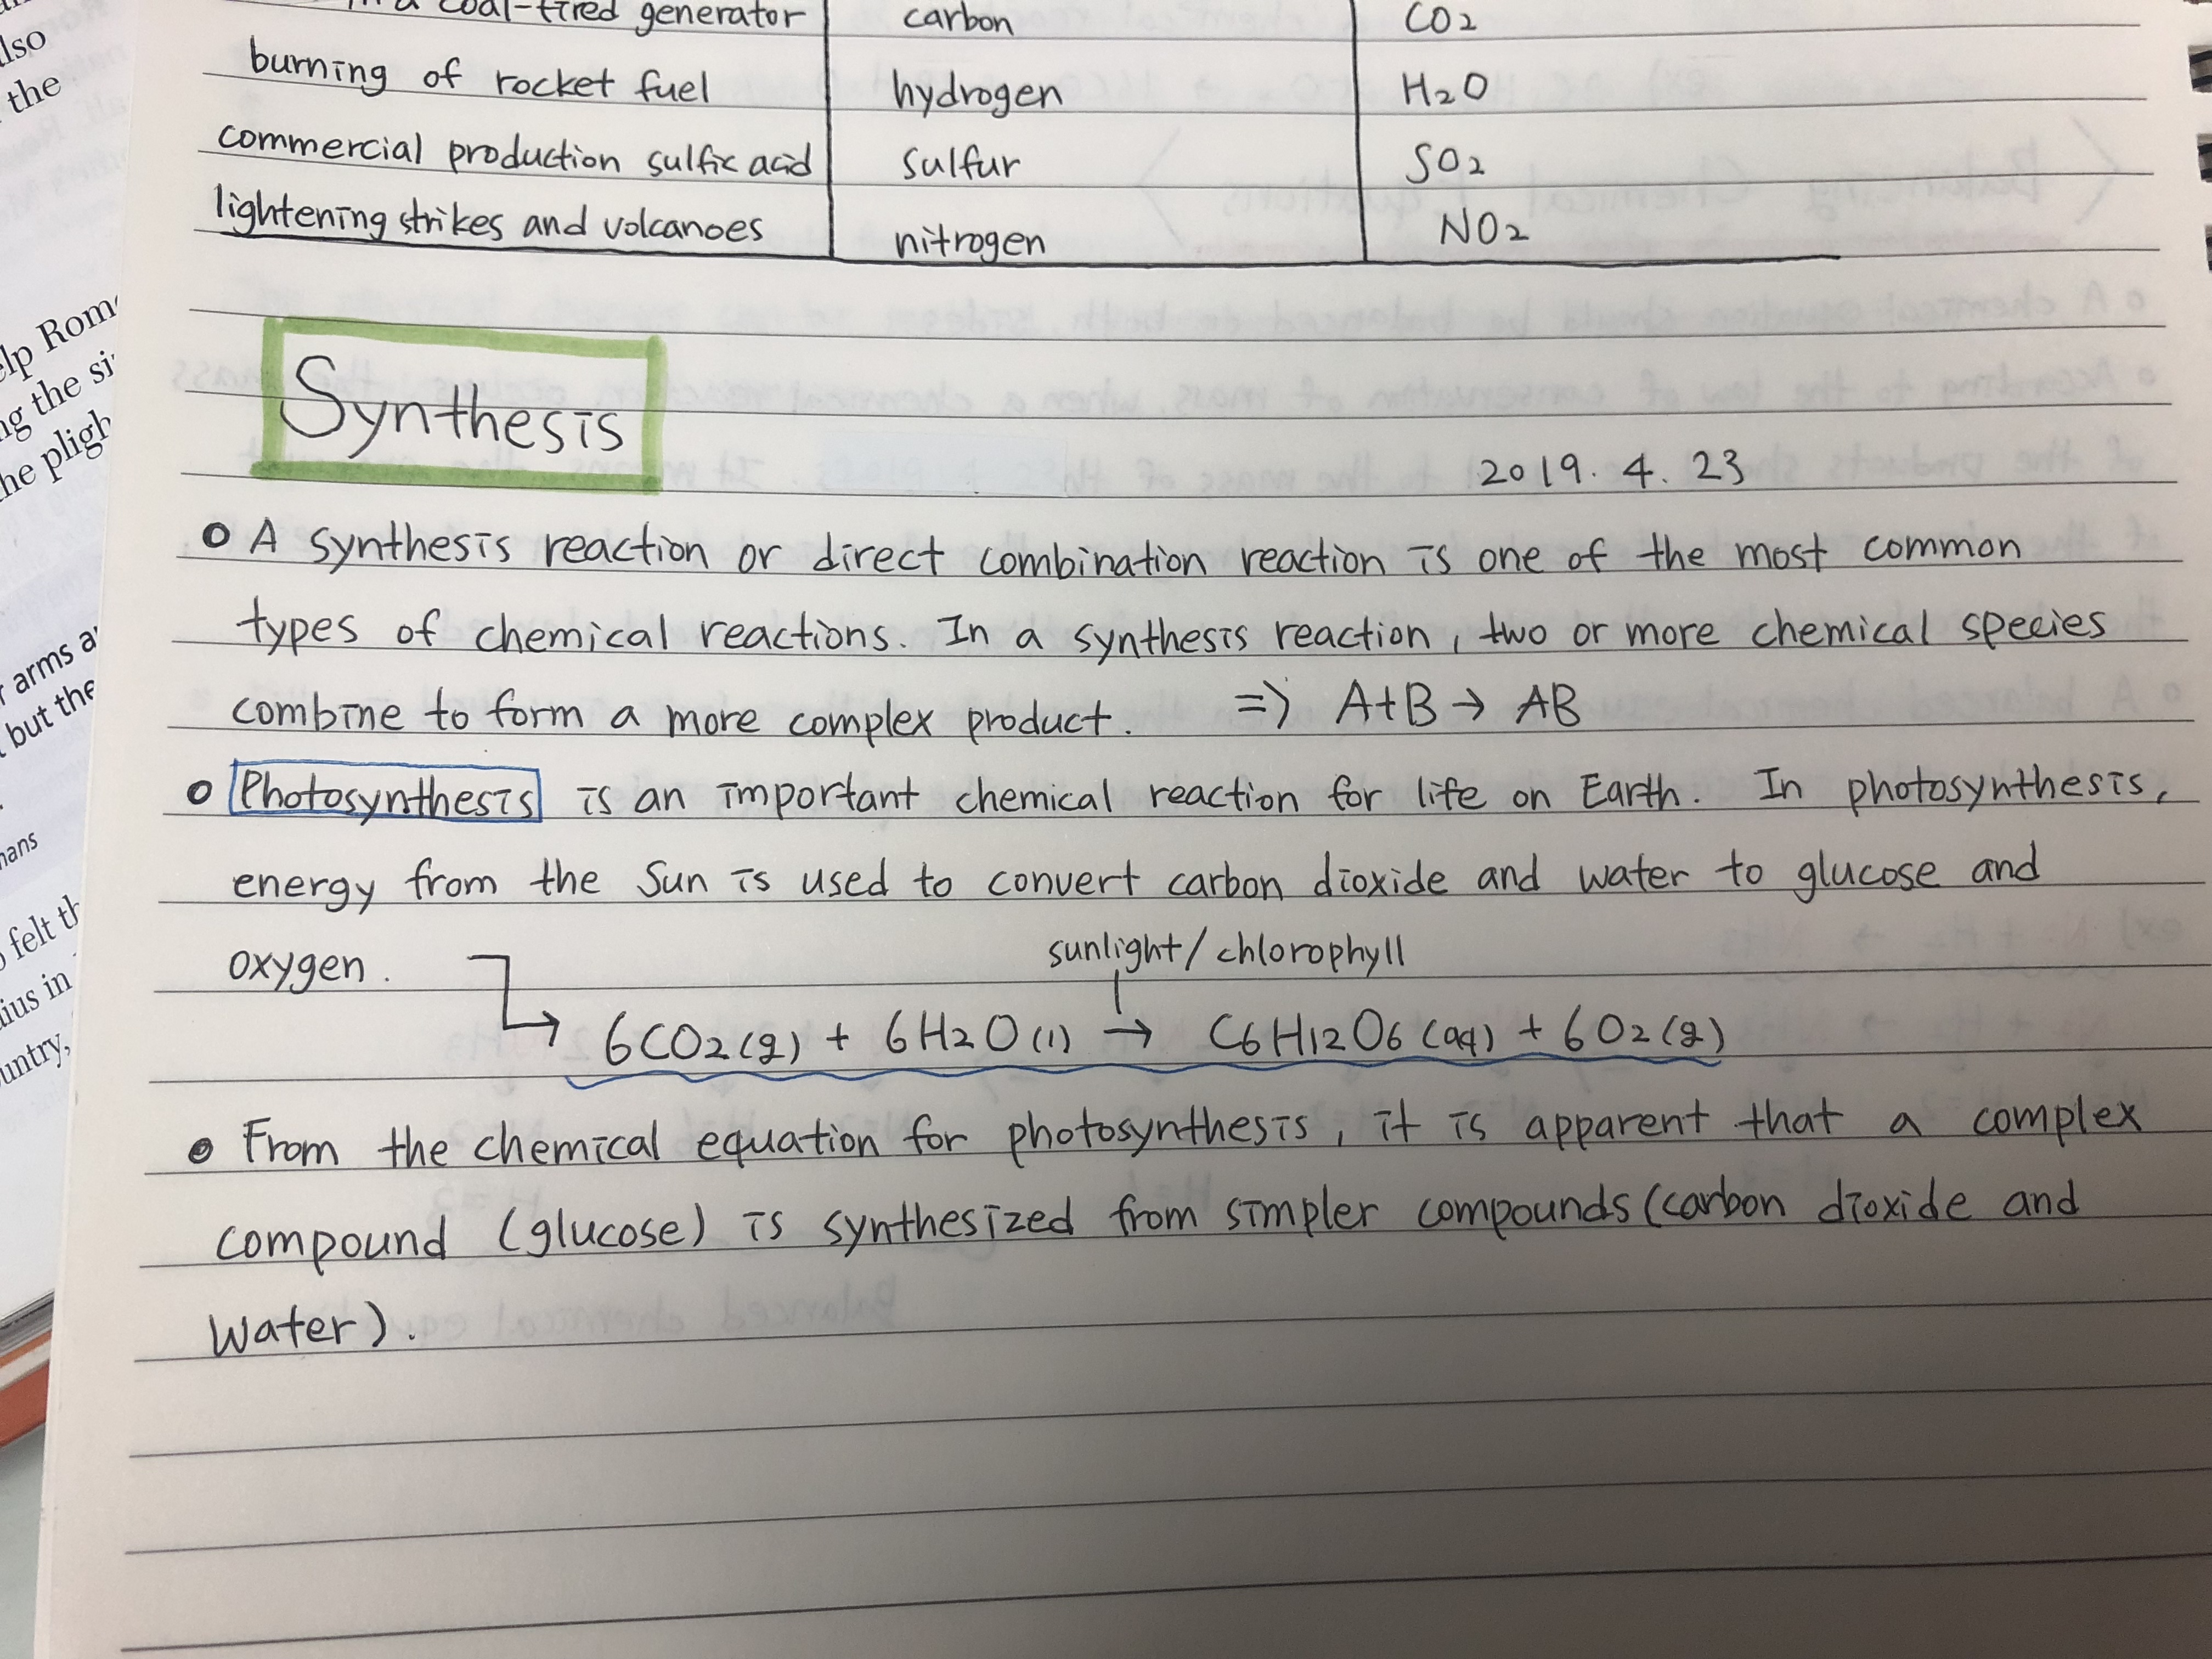 lso
the
elp Rom
ng the si
he pligh
arms a
but the
mans
felt th
ius in
untry,
in a coal-fired generator carbon CO2
burning of rocket fuel hydrogen H2O
commercial production sulfic acid sulfur SO2
lightening strikes and volcanoes nitrogen NO2
Synthesis
2019. 4. 23
o A synthesis reaction or direct combination reaction is one of the most common
types of chemical reactions. In a synthesis reaction, two or more chemical species
combine to form a more complex product. => A+B → AB
o Photosynthesis is an important chemical reaction for life on Earth. In photosynthesis,
energy from the Sun is used to convert carbon dioxide and water to glucose and
oxygen. sunlight/chlorophyll
6CO2(g) + 6H2O(l) → C6H12O6(aq) + 6O2(g)
o From the chemical equation for photosynthesis, it is apparent that a complex
compound (glucose) is synthesized from simpler compounds (carbon dioxide and
water).